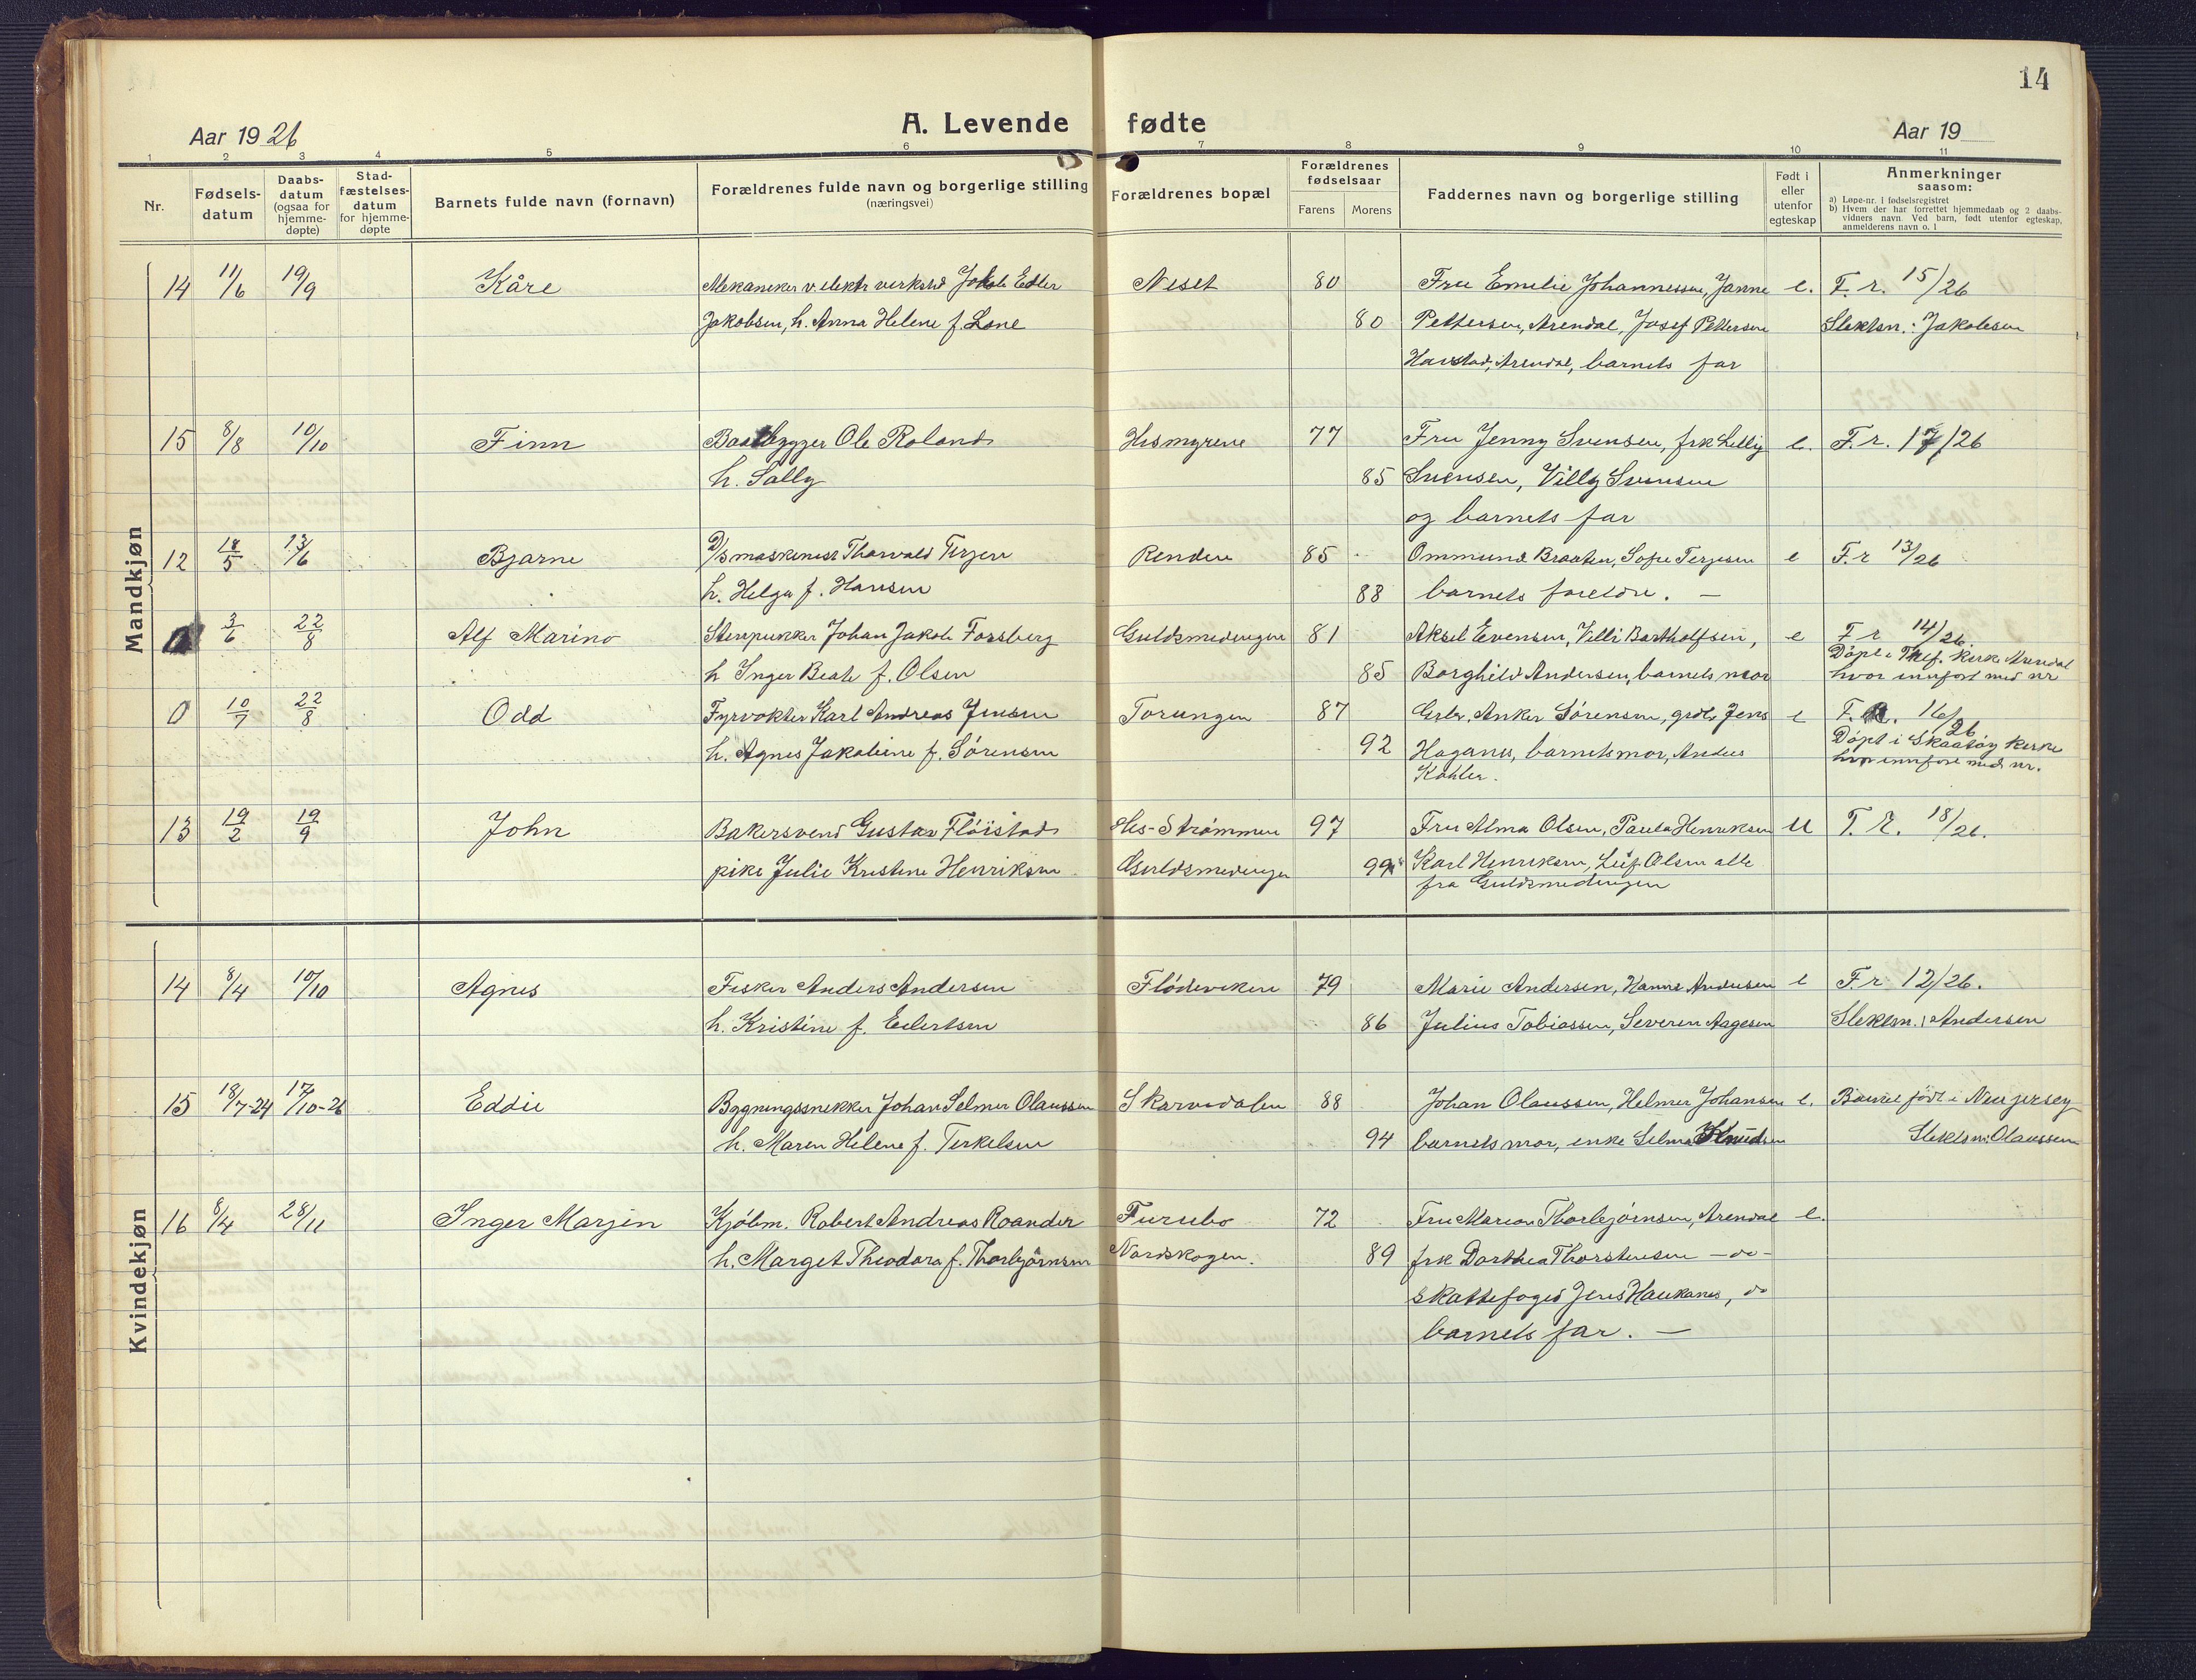 14
A. Levende fødte
Aar 1926
Aar 19
1 2 3 4 5 6 7 8 9 10 11
Nr.
Fødsels-
datum
Daabs-
datum
(ogsaa for
hjemme-
døpte)
Stad-
fæstelses-
datum
for hjemme-
døpte
Barnets fulde navn (fornavn)
Forældrenes fulde navn og borgerlige stilling
(næringsvei)
Forældrenes bopæl
Forældrenes
fødselsaar
Farens Morens
Faddernes navn og borgerlige stilling
Født i
eller
utenfor
egteskap
Anmerkninger
saasom:
a) Løpe-nr. i fødselsregistret
b) Hvem der har forrettet hjemmedaab og 2 daabs-
vidners navn Ved barn, født utenfor egteskap,
anmelderens navn o. l
Mandkjøn
14 11/6 19/9 Kåre Mekaneker v. elektr verksted Jakob Edler Neset 80 Fru Emelie Johannessen, Janne e. F. r. 15/26
Jakobsen, h. Anna Helene f. Lone 80 Pettersen, Arendal, Josef Pettersen Slektsn.: Jakobsen
Harstad, Arendal, barnets far
15 8/8 10/10 Finn Baatbygger Ole Roland Hismyrene 77 Fru Jenny Svensen, frk Lellig e. F. r. 17/26
h. Sally 85 Svensen, Villy Svensen
og barnets far
12 18/5 13/6 Bjarne D/s maskinist Thorvald Terjesen Renden 85 Ommund Braaten, Sofie Terjesen e F. r 13/26
h. Helga f. Hansen 88 barnets foreldre. —
3/6 22/8 Alf Marino Stenpukker Johan Jakob Forsberg Guldsmedengen 81 Aksel Evensen, Villi Bartholfsen, e F r 14/26
Døpt i Tref. kirke Arendal
h Inger Beate f. Olsen 85 Borghild Andersen, barnets mor hvor innført med nr
0 10/7 22/8 Odd Fyrvokter Karl Andreas Jensen Torungen 87 Grbr. Anker Sørensen, grdbr Jens e F. R. 16/26
Døpt i Skaatøy kirke
h. Agnes Jakobine f. Sørensen 92 Haganes, barnets mor, Anders hvor innført med nr.
Køhler.
13 19/2 19/9 John Bakersvend Gustav Fløistad His-Strømmen 97 Fru Alma Olsen, Paula Henriksen U F. R. 18/26.
pike Julie Kristine Henriksen Guldsmedengen 99 Karl Henriksen, Leif Olsen alle
fra Guldsmedengen
Kvindekjøn
14 8/4 10/10 Agnes Fisker Anders Andersen Flødeviken 79 Marie Andersen, Hanna Andersen e F. r 12/26.
h. Kristine f. Eilertsen 86 Julius Tobiassen, Severin Aagesen Slektsn.: Andersen
15 18/7-24 17/10-26 Eddie Bygningssnekker Johan Selmer Olaussen Skarvedalen 88 Johan Olaussen, Helmer Johansen e. Barnet født i New jersey
h. Maren Helene f. Terkelsen 94 barnets mor, enke Selma Knudsen Slektsn: Olaussen
16 8/4 28/11 Inger Marjen Kjøbm. Robert Andreas Roander Furubo 72 Fru Maren Thorbjørnsen, Arendal e.
h. Marget Theodora f. Thorbjørnsen Nordskogen. 89 frk Dorthea Thorstensen —do—
skattefoged Jens Haukanes, do
barnets far. —